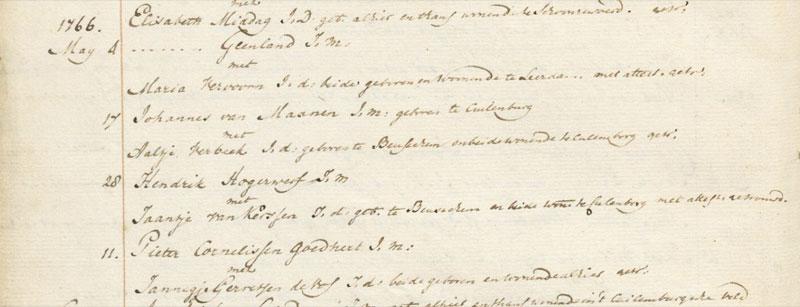 met
Elisabeth Middag J.D. geb. alhier en thans wonende te Schoonrewoerd. getr.
1766.
May 4 ........ Geenland J.m.
met
Maria Vervoorn J:d: beide geboren en wonende te Leerdam met attest. getr.
17 Johannes van Maanen J:m: geboren te Culenburg
met
Aaltje Verbeek J:d: geboren te Beusecum en beide wonende te Culemborg getr.
28 Hendrik Hogerwerf J.m
met
Jaantje van Kerssen J:d: geb. te Beusecum en beide wone te Culenborg met attest. getrouwd.
11. Pieter Cornelissen Goedhert J.m:
met
Jannegje Gerretsen de J:d: beide geboren en wonende alhier getr.
geb. alhier en thans wonende in't Cuilenburgsche veld